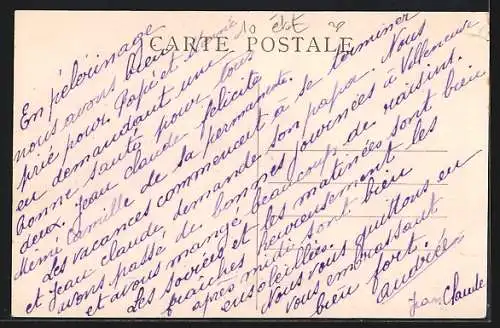 10 état
CARTE POSTALE
En pèlerinage
nous avons bien
prié pour Papé et Mémé
en demandant une
bonne santé pour tous
deux. Jean Claude félicite
Mémé Camille de sa permanente.
Les vacances commencent à se terminer
et Jean Claude demande son papa. Nous
avons passé de bonnes journées à Villeneuve
et avons mangé beaucoup de raisins.
Les soirées et les matinées sont bien
fraîches heureusement les
après midi sont bien
ensoleillées.
Nous vous quittons en
vous embrassant
bien fort.
Andrée
Jean Claude